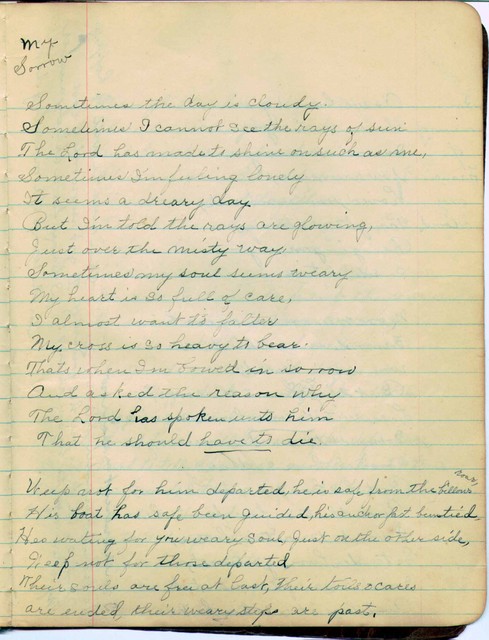 My
Sorrow
Sometimes the day is cloudy.
Sometimes I cannot see the rays of sun
The Lord has made to shine on such as me,
Sometimes I'm feeling lonely
It seems a dreary day
But I'm told the rays are glowing,
Just over the misty way.
Sometimes my soul seems weary
My heart is so full of care,
I almost want to falter
My cross is so heavy to bear.
Thats when I'm bowed in sorrow
And asked the reason why
The Lord has spoken unto him
That he should have to die.
Weep not for him departed, he is safe from the billows
His boat has safe been guided, his anchor been tied,
Hes waiting for you weary soul, Just on the other side,
Weep not for those departed
Their souls are free at last, their toils & cares
are ended, their weary steps are past.